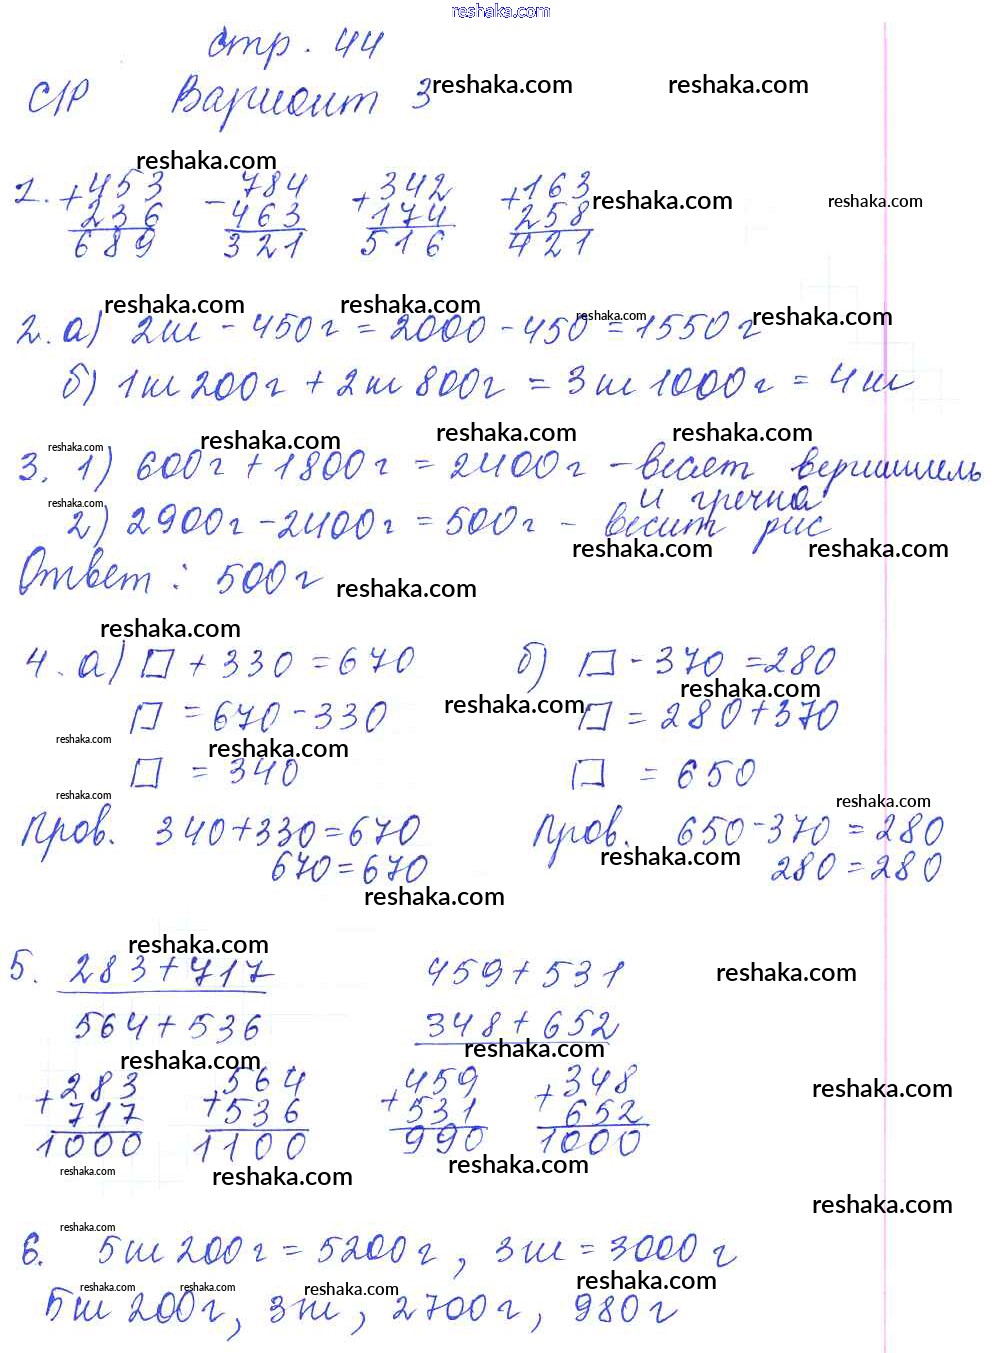 reshaka.com
стр. 44
С/Р Вариант 3 reshaka.com reshaka.com
reshaka.com
1. +453 -784 +342 +163 reshaka.com reshaka.com
236 463 174 258
689 321 516 421
reshaka.com reshaka.com reshaka.com reshaka.com
2. а) 2кг - 450г = 2000 - 450 = 1550г
б) 1кг 200г + 2кг 800г = 3кг 1000г = 4кг
reshaka.com reshaka.com reshaka.com reshaka.com
3. 1) 600г + 1800г = 2400г - весят вермишель
и гречка
reshaka.com
2) 2900г - 2400г = 500г - весит рис
reshaka.com reshaka.com
Ответ: 500г reshaka.com
reshaka.com
4. а) □ + 330 = 670 б) □ - 370 = 280
reshaka.com reshaka.com
□ = 670 - 330 □ = 280 + 370
reshaka.com reshaka.com
□ = 340 □ = 650
reshaka.com reshaka.com
Пров. 340 + 330 = 670 Пров. 650 - 370 = 280
reshaka.com
670 = 670 280 = 280
reshaka.com
reshaka.com reshaka.com
5. 283 + 717 459 + 531
564 + 536 348 + 652
reshaka.com reshaka.com
+283 +564 +459 +348 reshaka.com
717 536 531 652
1000 1100 990 1000
reshaka.com reshaka.com reshaka.com
reshaka.com
reshaka.com
6. 5кг 200г = 5200г, 3кг = 3000г
reshaka.com reshaka.com reshaka.com reshaka.com
5кг 200г, 3кг, 2700г, 980г